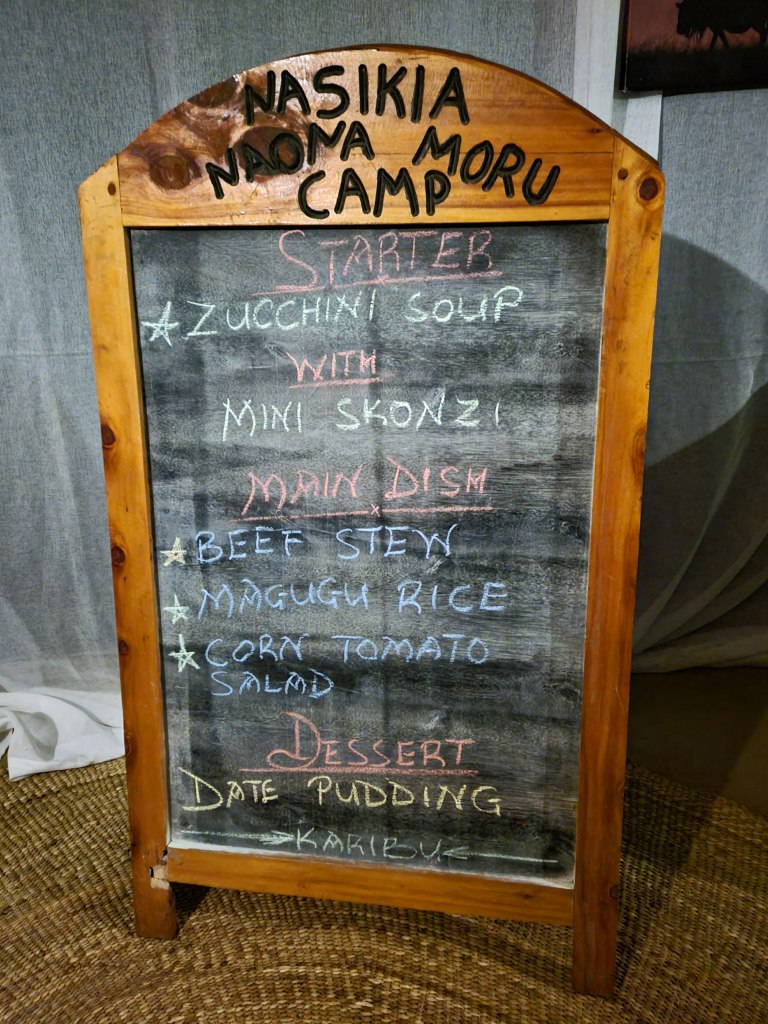 NASIKIA
NAONA MORU
CAMP
STARTER
ZUCCHINI SOUP
WITH
MINI SKONZI
MAIN DISH
BEEF STEW
MAGUGU RICE
CORN TOMATO
SALAD
DESSERT
DATE PUDDING
KARIBU